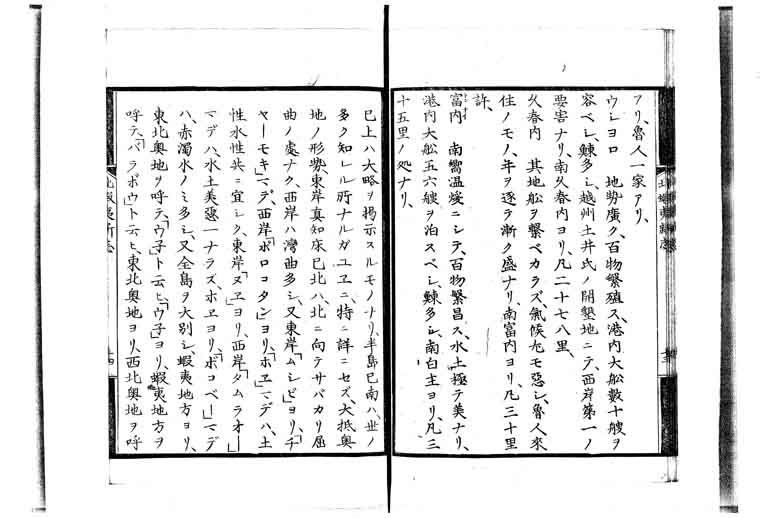 アリ、魯人一家アリ、
ウショロ　地勢廣ク、百物繁殖ス、港内大船數十艘ヲ
容ベシ、鰊多シ、越州土井氏ノ開墾地ニテ、西岸第一ノ
要害ナリ、南久春内ヨリ、凡二十七八里、
久春内　其地船ヲ繋ベカラズ、氣候尤モ惡シ、魯人來
住ノモノ、年ヲ逐テ漸ク盛ナリ、南富内ヨリ、凡三十里
許、
富内　南嚮温煖ニシテ、百物繁昌ス、水土極テ美ナリ、
港内大船五六艘ヲ泊スベシ、鰊多シ、南白主ヨリ、凡三
十五里ノ処ナリ、
已上ハ大略ヲ掲示スルモノナリ、半島已南ハ、世ノ
多ク知レル所ナルガユヱニ、特ニ詳ニセズ、大抵奥
地ノ形勢、東岸真知床已北ハ、北ニ向テサバカリ屈
曲ノ處ナク、西岸ハ灣曲多シ、又東岸「ムシビ」ヨリ、「チ
ヤーモキ」マデ、西岸「ポロコタン」ヨリ、「ホヱ」マデハ、土
性水性共ニ宜シク、東岸「ヌヱ」ヨリ、西岸「タムラオー」
マデハ、水土美惡一ナラズ、ホヱヨリ、「ポコベー」マデ
ハ、赤濁水ノミ多シ、又全島ヲ大別シ、蝦夷地方ヨリ、
東北奥地ヲ呼テ、「ウ子」ト云ヒ、「ウ子」ヨリ、蝦夷地方ヲ
呼テ、「バラボウ」ト云ヒ、東北奥地ヨリ、西北奥地ヲ呼